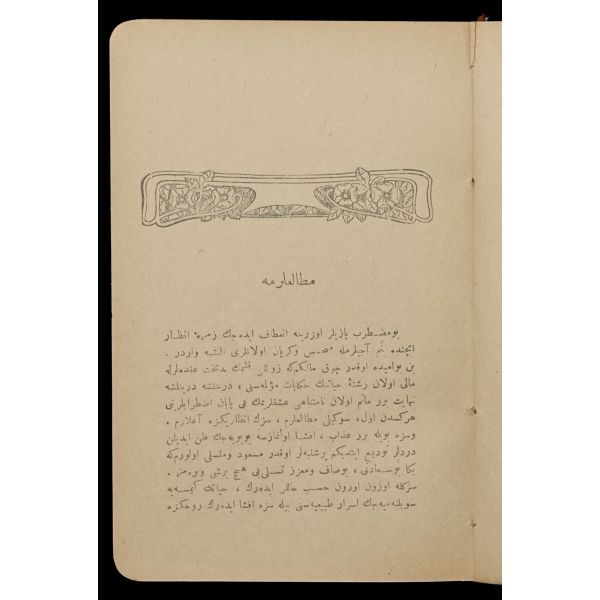 مطالعلرمه
بو مضطرب یازیلر اوزرینه انعطاف ایده‌جك زمرهٔ انظار
ایچنده بنم آجیلرمله متحسس وكریان اولانلری البته واردر .
بن بوامیده اوقدر چوق مالكم‌كه زواللی قلبمك بدبخت عقده‌لرله
مالی اولان رشتهٔ حیاتنك حكایات مؤلمه‌سنی ، درینلشه درینلشه
نهایت برر ماتم اولان نامتناهی عشقلریمك بی پایان اضطرابلرینی
هركسدن اول، سوكیلی مطالعلرم ، سزك انظاریكزه آغلارم .
وسزه بویله برر عذاب ، افشا اولنمازسه بویویه‌جك ظن ایدیلن
دردلر تودیع ایتدیكم پرشبه‌لر اوقدر مسعود ومتسلی اولورم‌كه
بكا بوسعادتی ، بوصاف ومعزز تسلی‌یی هیچ برشی ویره‌مز .
سزكله اوزون اوزون حسب حاللر ایده‌رك ، حیاتك كیمسه‌یه
سویلنه‌میه‌جك اسرار طبیعیه‌سنی بیله سزه افشا ایده‌رك روحكزه